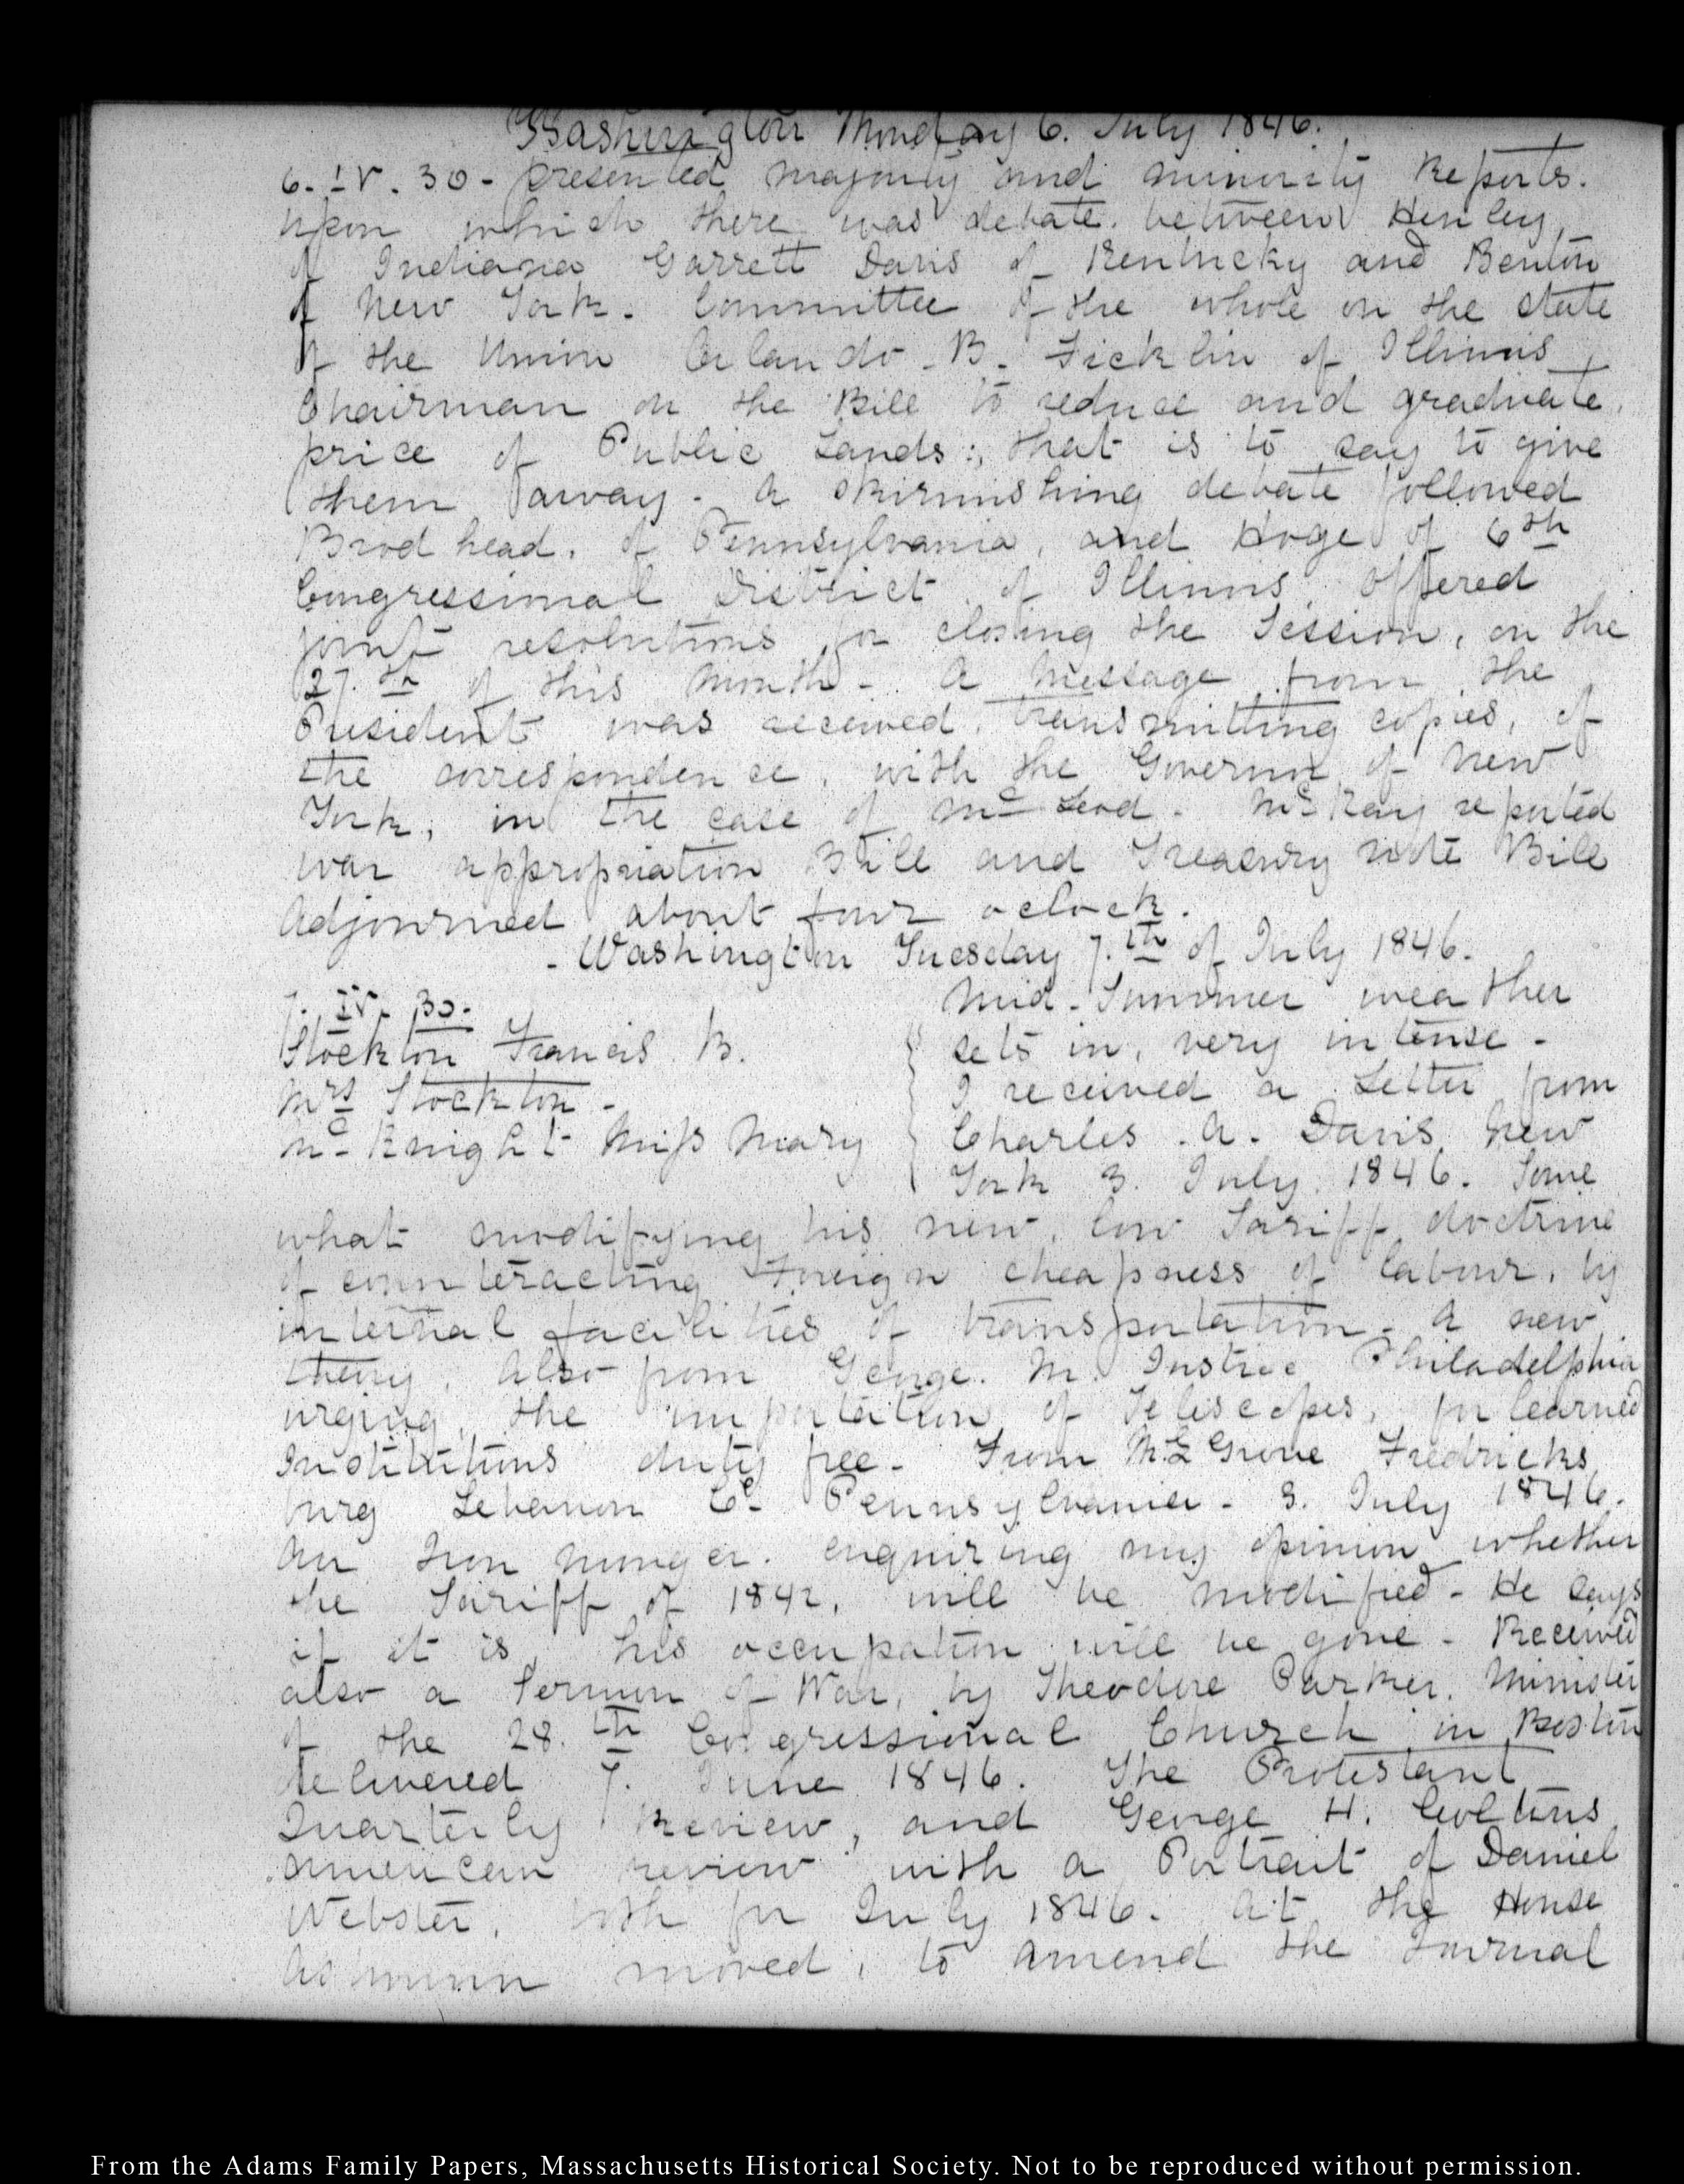 Washington Monday 6. July 1846.
6. IV. 30 - presented majority and minority Reports.
upon which there was debate. between Henley,
of Indiana Garrett Davis of Kentucky and Benton
of New York. Committee of the whole on the state
of the Union Orlando. B. Ficklin of Illinois,
Chairman on the Bill to reduce and graduate,
price of Public Lands:, that is to say to give
them away - A skirmishing debate followed
Brodhead, of Pennsylvania, and Hoge of 6th
Congressional District of Illinois, offered
joint resolutions for closing the Session, on the
27.th of this Month - A Message from the
President was received, transmitting copies, of
the correspondence, with the Governor of New
York, in the case of Mc Leod - McKay reported
war appropriation Bill and Treasury note Bill
Adjourned about four oclock.
- Washington Tuesday 7.th of July 1846.
7. IV. 30.
Stockton Francis. B.
Mrs Stockton -
Mc Knight Miss Mary
Mid-Summer weather
sets in, very intense -
I received a Letter from
Charles. A. Davis New
York 3. July. 1846. Some
what modifying his new, low Tariff doctrine
of counteracting Foreign cheapness of labour, by
internal facilities of transportation - A new
theory, Also from George. M. Justice Philadelphia
urging, the importation of Teliscopes, for learned
Institutions duty free - From M. L Grove Fredricks
burg Lebanon Co- Pennsylvania - 3. July 1846.
An Iron Monger. enquiring my opinion whether
the Tariff of 1842, will be modified - He says
if it is, his occupation will be gone - Received
also a Sermon of War, by Theodore Parker, Minister
of the 28.th Congressional Church in Boston
delivered 7. June 1846. The Protestant
Quarterly Review, and George H. Coltons
American review with a Portrait of Daniel
Webster, both for July 1846. At the House
Ashmun moved, to amend the Journal
From the Adams Family Papers, Massachusetts Historical Society. Not to be reproduced without permission.